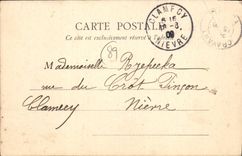 CARTE POSTALE
Ce côté est exclusivement réservé à l'adresse
CLAMECY
NIÈVRE
09
89
Mademoiselle Rzepecka
rue du Crôt Pinçon
Clamecy
Nièvre